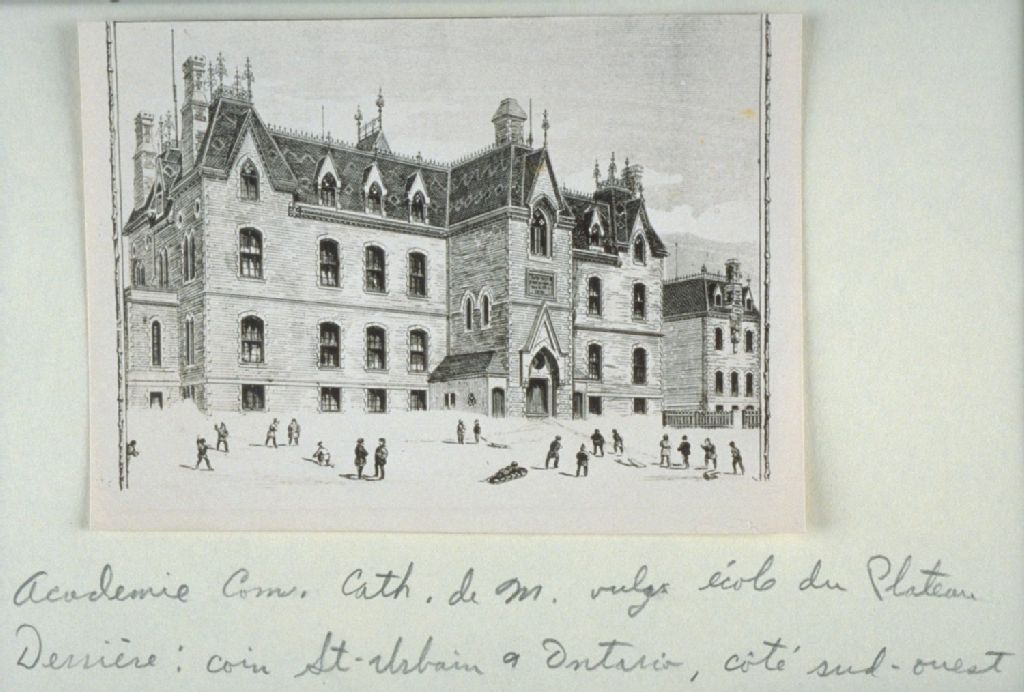 Academie Com. Cath. de M. vulg. école du Plateau
Derrière : coin St-Urbain & Ontario, côté sud-ouest